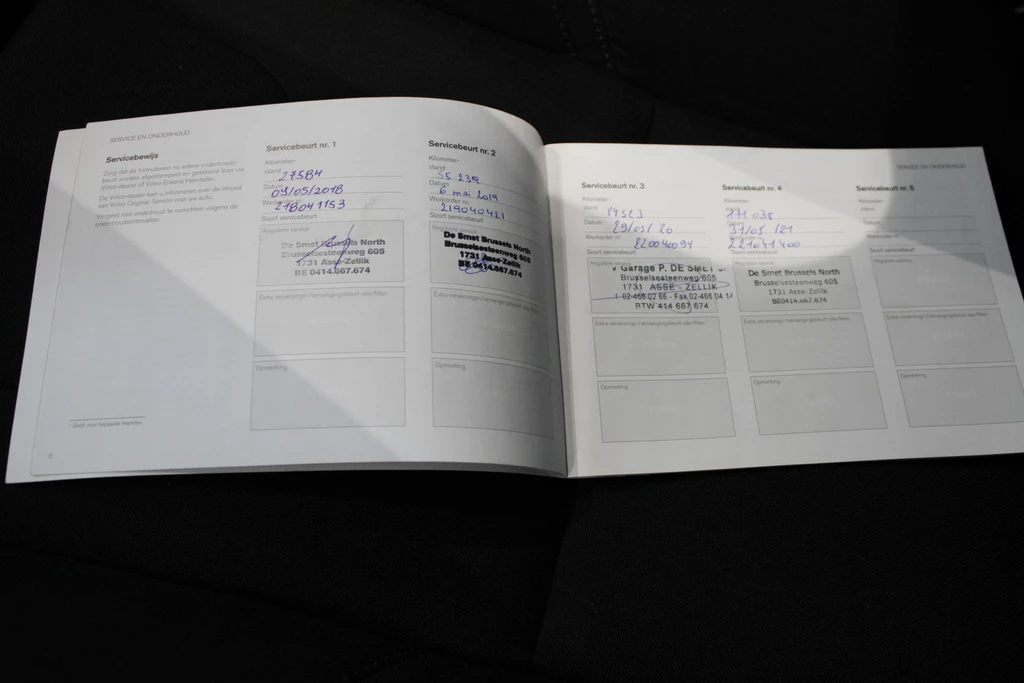 SERVICE EN ONDERHOUD
Servicebewijs
Zorg dat de formulieren na iedere onderhouds-
beurt worden afgestempeld en getekend door uw
Volvo-dealer of Volvo Erkend Hersteller.
De Volvo-dealer kan u informeren over de inhoud
van Volvo Original Service voor uw auto.
Vergeet niet onderhoud te verrichten volgens de
onderhoudsintervallen.
1 Geldt voor bepaalde markten.
8
Servicebeurt nr. 1
Kilometer-
stand 27584
Datum 09/05/2018
Werkorder nr. 218041153
Soort servicebeurt
Reguliere service:
De Smet Brussels North
Brusselsesteenweg 605
1731 Asse-Zellik
BE 0414.667.674
Opmerking
Servicebeurt nr. 2
Kilometer-
stand 55.239
Datum 6 mai 2019
Werkorder nr. 219040421
Soort servicebeurt
Reguliere service:
De Smet Brussels North
Brusselsesteenweg 605
1731 Asse-Zellik
BE 0414.667.674
Opmerking
SERVICE EN ONDERHOUD
Servicebeurt nr. 3
Kilometer-
stand
Datum 29/05/20
Werkorder nr. 220040094
Soort servicebeurt
Reguliere service:
Garage P. DE SMET
Brusselsesteenweg 605
1731 ASSE - ZELLIK
02-466 02 66 - Fax 02-466 04 14
BTW 414 667 674
Opmerking
Servicebeurt nr. 4
Kilometer-
stand
Datum 31/05/21
Werkorder nr. 221041400
Soort servicebeurt
Reguliere service:
De Smet Brussels North
Brusselsesteenweg 605
1731 Asse-Zellik
BE0414.667.674
Opmerking
Servicebeurt nr. 5
Kilometer-
stand
Datum
Werkorder nr.
Soort servicebeurt
Reguliere service:
Opmerking